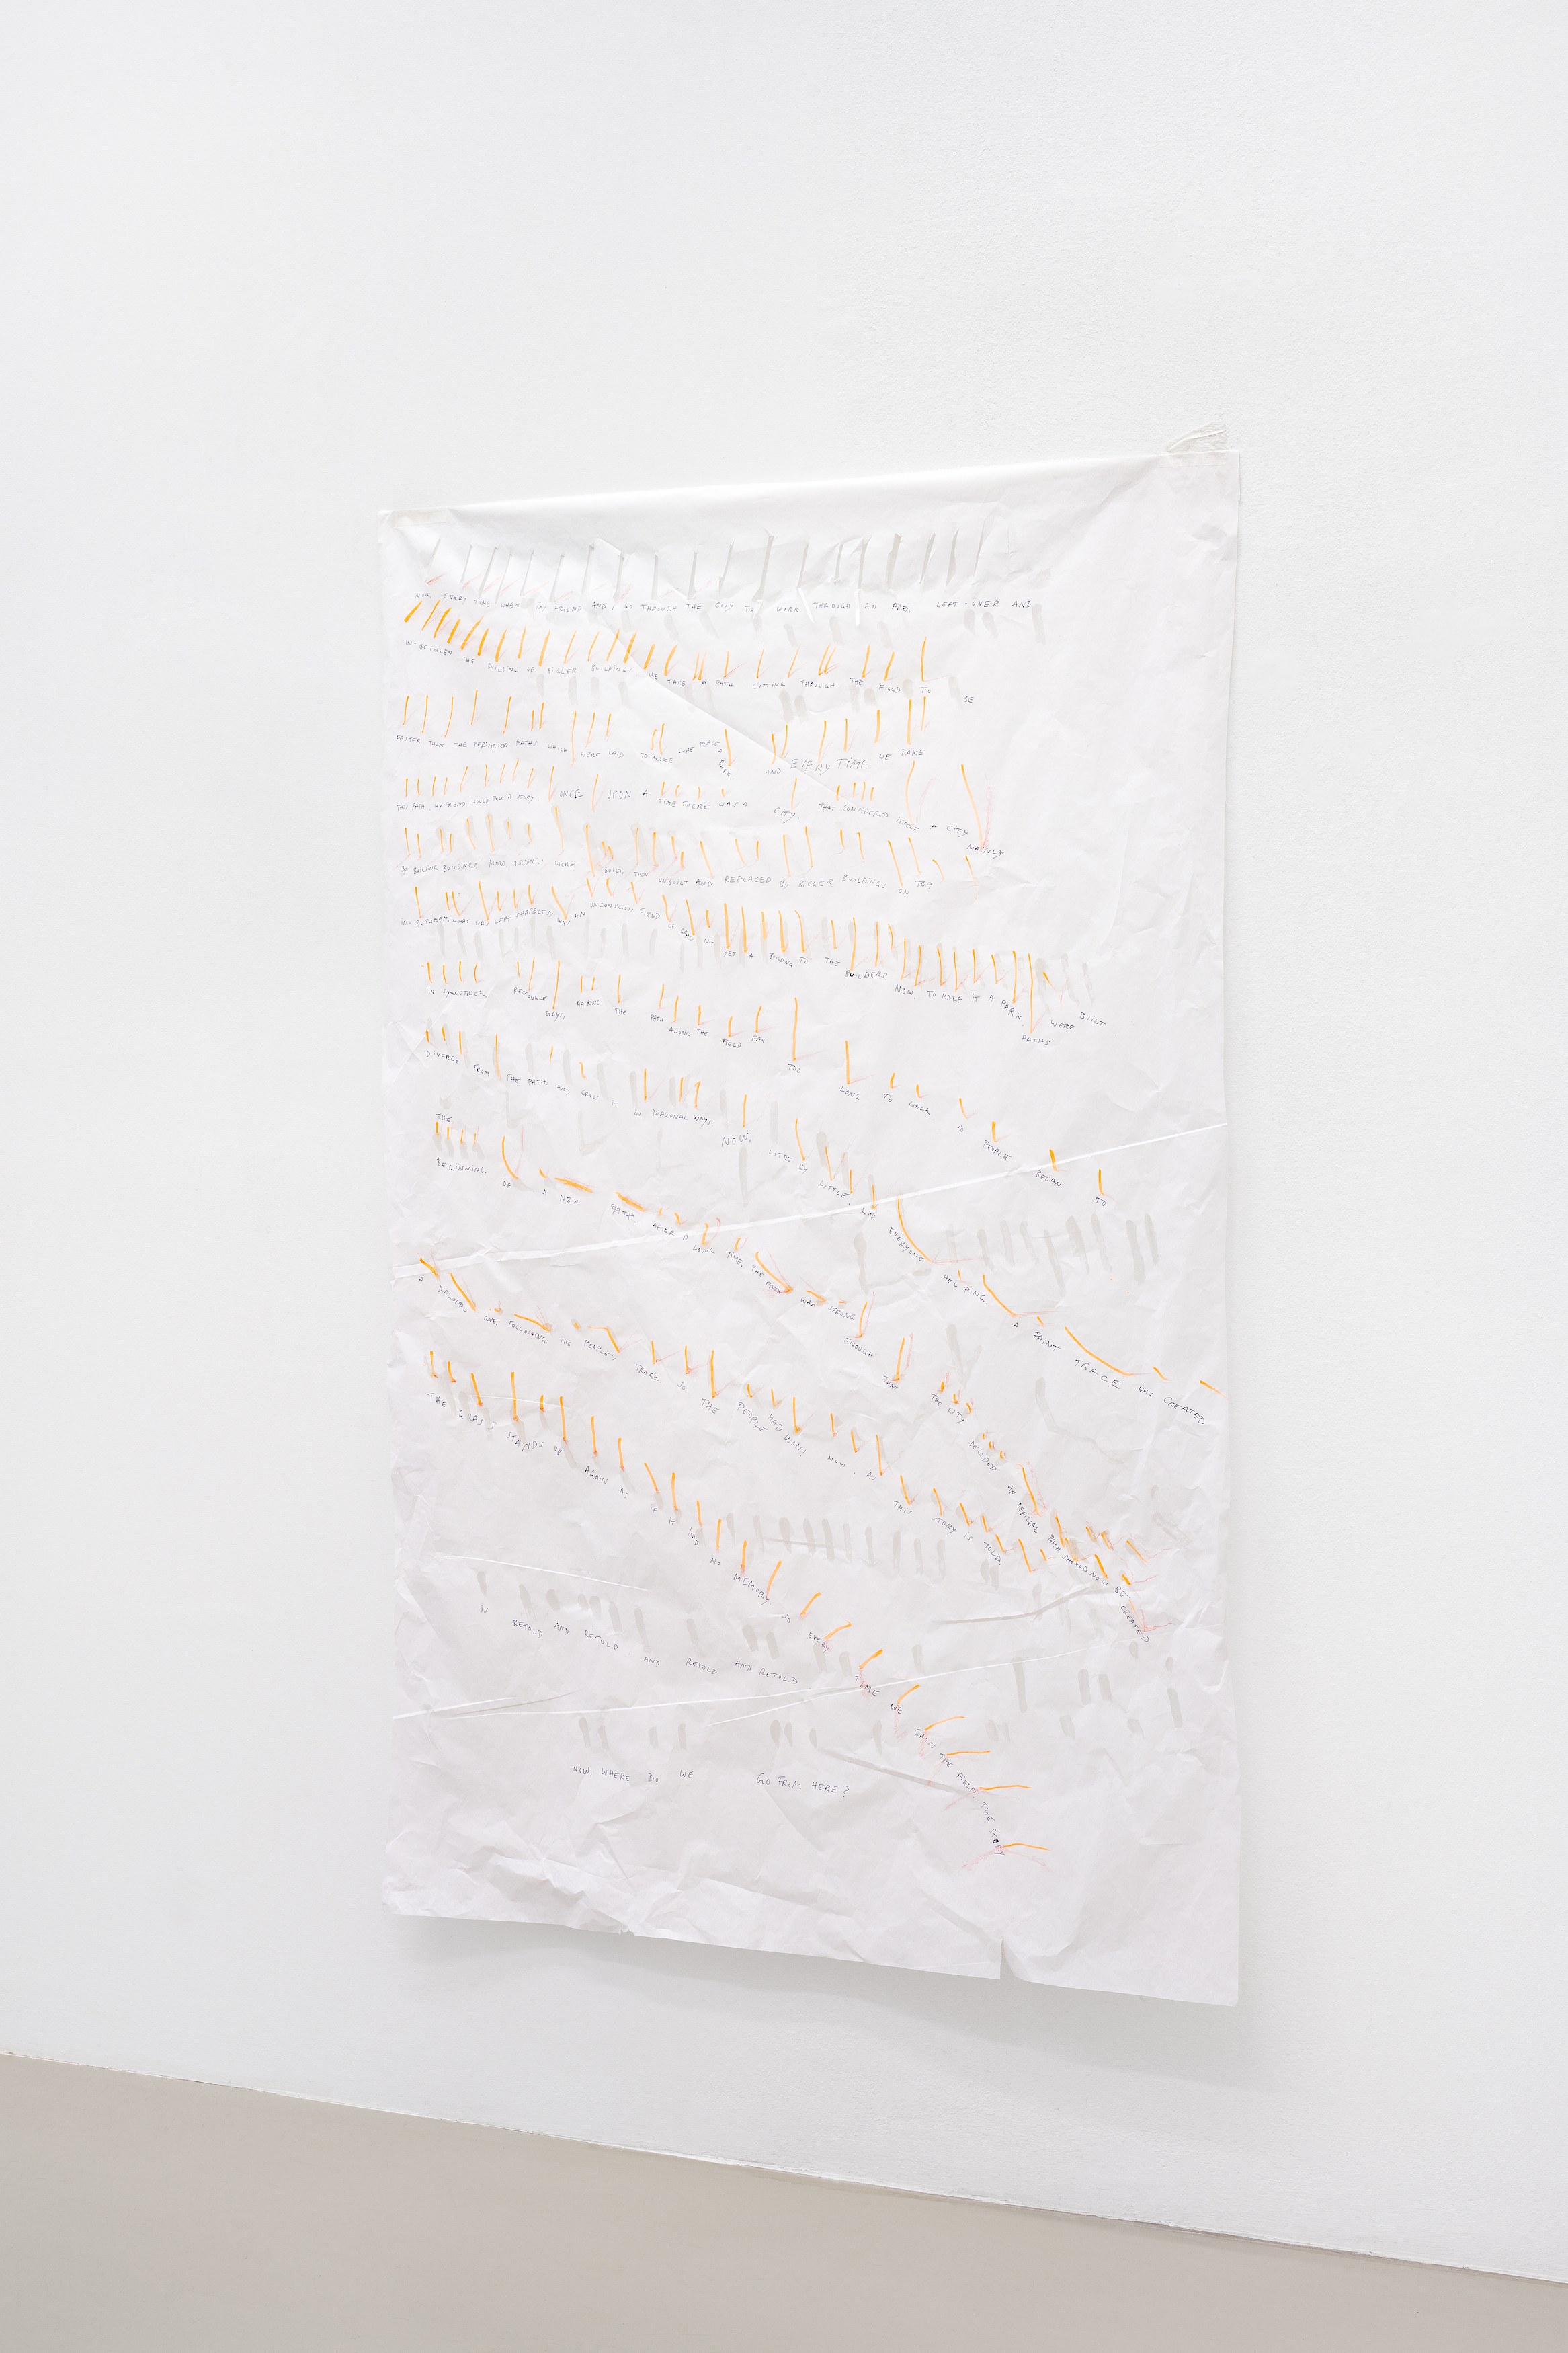 NOW, EVERY TIME WHEN MY FRIEND AND I GO THROUGH THE CITY TO WORK THROUGH AN AREA LEFT-OVER AND
IN-BETWEEN THE BUILDING OF BIGGER BUILDINGS WE TAKE A PATH CUTTING THROUGH THE FIELD TO BE
FASTER THAN THE PERIMETER PATHS WHICH WERE LAID TO MAKE THE PLACE A PARK AND EVERY TIME WE TAKE
THIS PATH, MY FRIEND WOULD TELL A STORY: ONCE UPON A TIME THERE WAS A CITY. THAT CONSIDERED ITSELF A CITY MAINLY
BY BUILDING BUILDINGS. NOW, BUILDINGS WERE BUILT, THEN UNBUILT AND REPLACED BY BIGGER BUILDINGS ON TOP
IN-BETWEEN, WHAT WAS LEFT WAS AN UNCONSCIOUS FIELD OF GRASS NOT YET A TO THE BUILDERS NOW. TO MAKE IT A PARK. PATHS WERE BUILT
IN SYMMETRICAL RECTANGLE WAYS, MAKING THE PATH ALONG THE FIELD FAR TOO LONG TO WALK SO PEOPLE BEGAN TO
DIVERGE FROM THE PATHS AND CROSS IT IN DIAGONAL WAYS. NOW, LITTLE BY LITTLE, WITH EVERYONE HELPING. A FAINT TRACE WAS CREATED
THE BEGINNING OF A NEW PATH. AFTER A LONG TIME, THE PATH WAS STRONG ENOUGH THAT THE CITY DECIDED AN OFFICIAL PATH SHOULD NOW BE CREATED
A DIAGONAL ONE. FOLLOWING THE PEOPLE'S TRACE SO THE PEOPLE HAD WON! NOW, AS THIS STORY IS TOLD,
THE GRASS STANDS UP AGAIN AS IF IT HAD NO MEMORY SO EVERY TIME WE CROSS THE FIELD THE STORY
IS RETOLD AND RETOLD AND RETOLD AND RETOLD
NOW, WHERE DO WE GO FROM HERE?